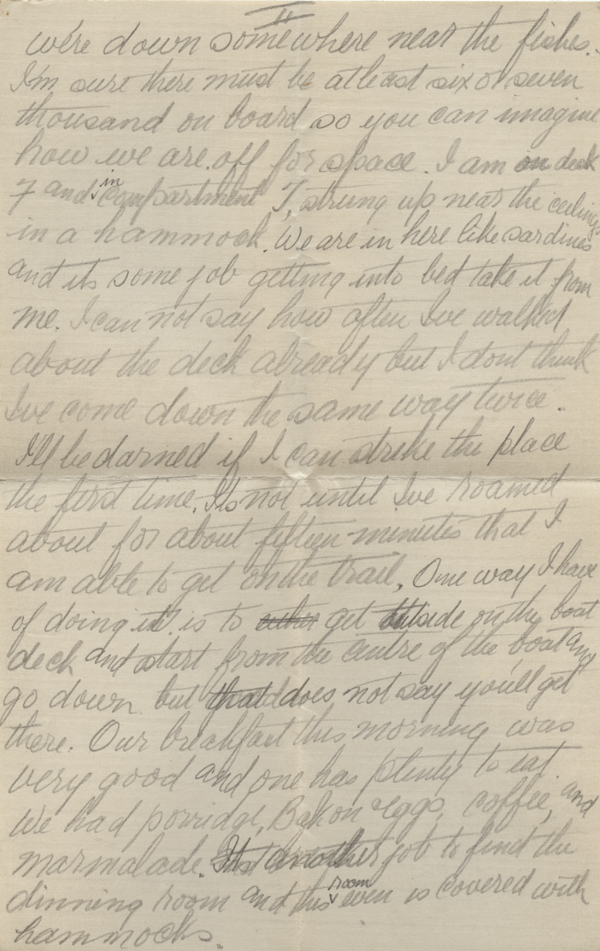 II
we're down somewhere near the fishes.
I'm sure there must be atleast six or seven
thousand on board so you can imagine
how we are off for space. I am on deck
7 and in compartment T, strung up near the ceiling
in a hammock. We are in here like sardines
and its some job getting into bed take it from
me. I can not say how often I've walked
about the deck already but I dont think
I've come down the same way twice.
I'll be darned if I can strike the place
the first time. Its not until I've roamed
about for about fifteen minutes that I
am able to get on the trail. One way I have
of doing it is to either get outside on the boat
deck and start from the centre of the boat and
go down but that does not say you'll get
there. Our breakfast this morning was
very good and one has plenty to eat
We had porridge, Bakon eggs, coffee, and
marmalade. Its another job to find the
dinning room and this room even is covered with
hammocks.